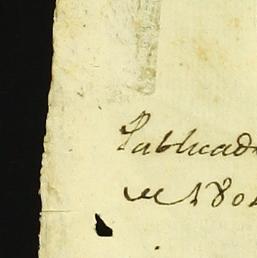 Publicad
de 180